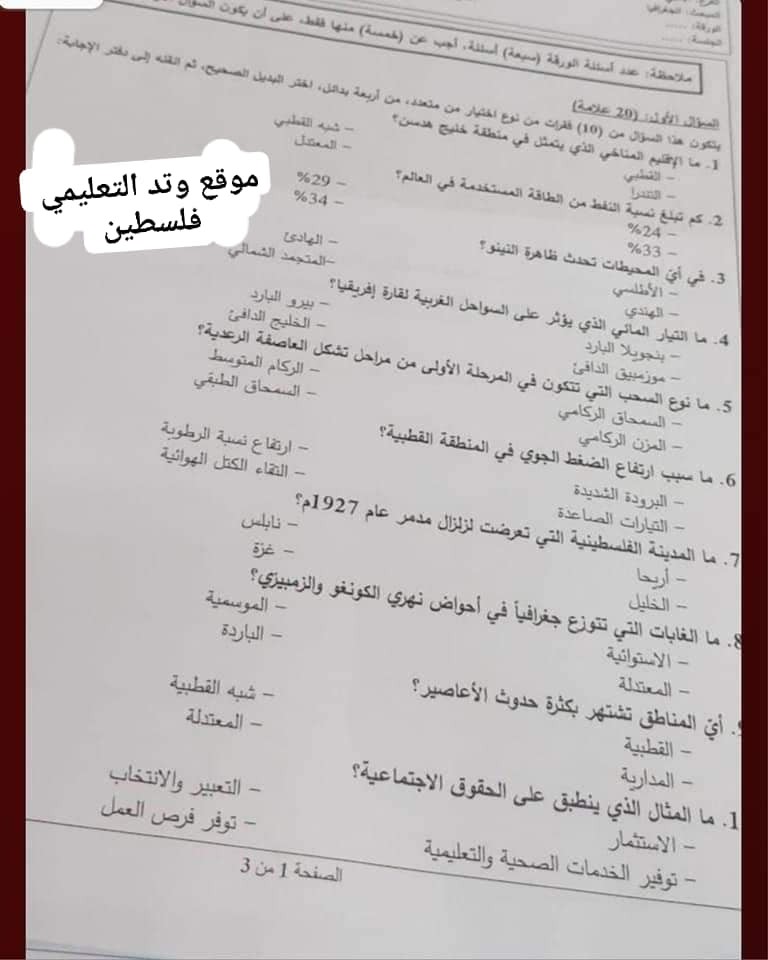 المبحث: الجغرافيا
الورقة: ......
الجلسة: ......
ملاحظة: عدد أسئلة الورقة (سبعة) أسئلة، أجب عن (خمسة) منها فقط، على أن يكون السؤال
السؤال الأول: (20 علامة)
يتكون هذا السؤال من (10) فقرات من نوع اختيار من متعدد، من أربعة بدائل، اختر البديل الصحيح، ثم انقله إلى دفتر الإجابة:
1. ما الإقليم المناخي الذي يتمثل في منطقة خليج هدسن؟
- القطبي - شبه القطبي
- التندرا - المعتدل
2. كم تبلغ نسبة النفط من الطاقة المستخدمة في العالم؟
- 24% - 29%
- 33% - 34%
3. في أيّ المحيطات تحدث ظاهرة النينو؟
- الأطلسي - الهادئ
- الهندي - المتجمد الشمالي
4. ما التيار المائي الذي يؤثر على السواحل الغربية لقارة إفريقيا؟
- بنجويلا البارد - بيرو البارد
- موزمبيق الدافئ - الخليج الدافئ
5. ما نوع السحب التي تتكون في المرحلة الأولى من مراحل تشكل العاصفة الرعدية؟
- السمحاق الركامي - الركام المتوسط
- المزن الركامي - السمحاق الطبقي
6. ما سبب ارتفاع الضغط الجوي في المنطقة القطبية؟
- البرودة الشديدة - ارتفاع نسبة الرطوبة
- التيارات الصاعدة - التقاء الكتل الهوائية
7. ما المدينة الفلسطينية التي تعرضت لزلزال مدمر عام 1927م؟
- أريحا - نابلس
- الخليل - غزة
8. ما الغابات التي تتوزع جغرافياً في أحواض نهري الكونغو والزمبيزي؟
- الاستوائية - الموسمية
- المعتدلة - الباردة
. أيّ المناطق تشتهر بكثرة حدوث الأعاصير؟
- القطبية - شبه القطبية
- المدارية - المعتدلة
1. ما المثال الذي ينطبق على الحقوق الاجتماعية؟
- الاستثمار - التعبير والانتخاب
- توفير الخدمات الصحية والتعليمية - توفر فرص العمل
الصفحة 1 من 3
موقع وتد التعليمي
فلسطين